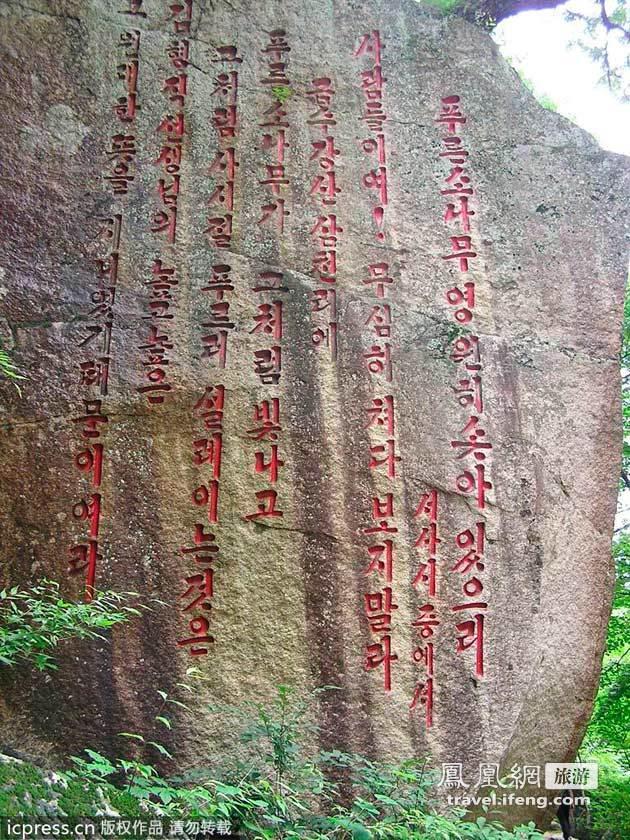 푸른소나무 영원히 솟아 있으리
서사시중에서
사람들이여! 무심히 쳐다 보지말라
금수강산 삼천리에
푸른소나무가 그처럼 빛나고
그처럼 사시절 푸르러 설레이는것은
김형직선생님의 높고높은
그 위대한 뜻을 지녀있기때문에여라
鳳凰網 旅游
travel.ifeng.com
icpress.cn 版权作品 请勿转载